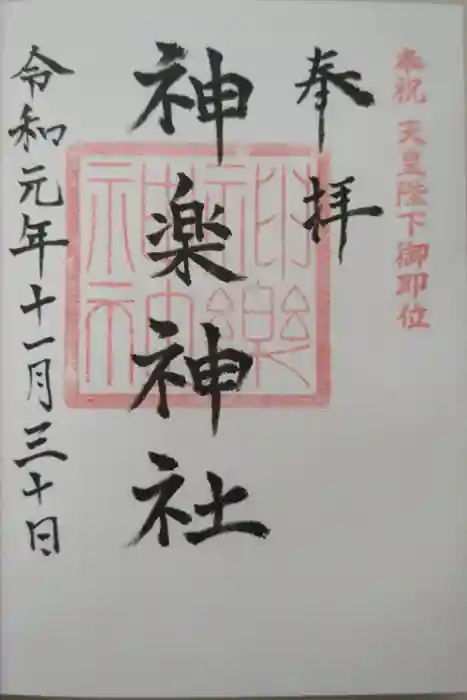 奉祝 天皇陛下御即位
奉拝
神楽神社
神樂神社
令和元年十一月三十日